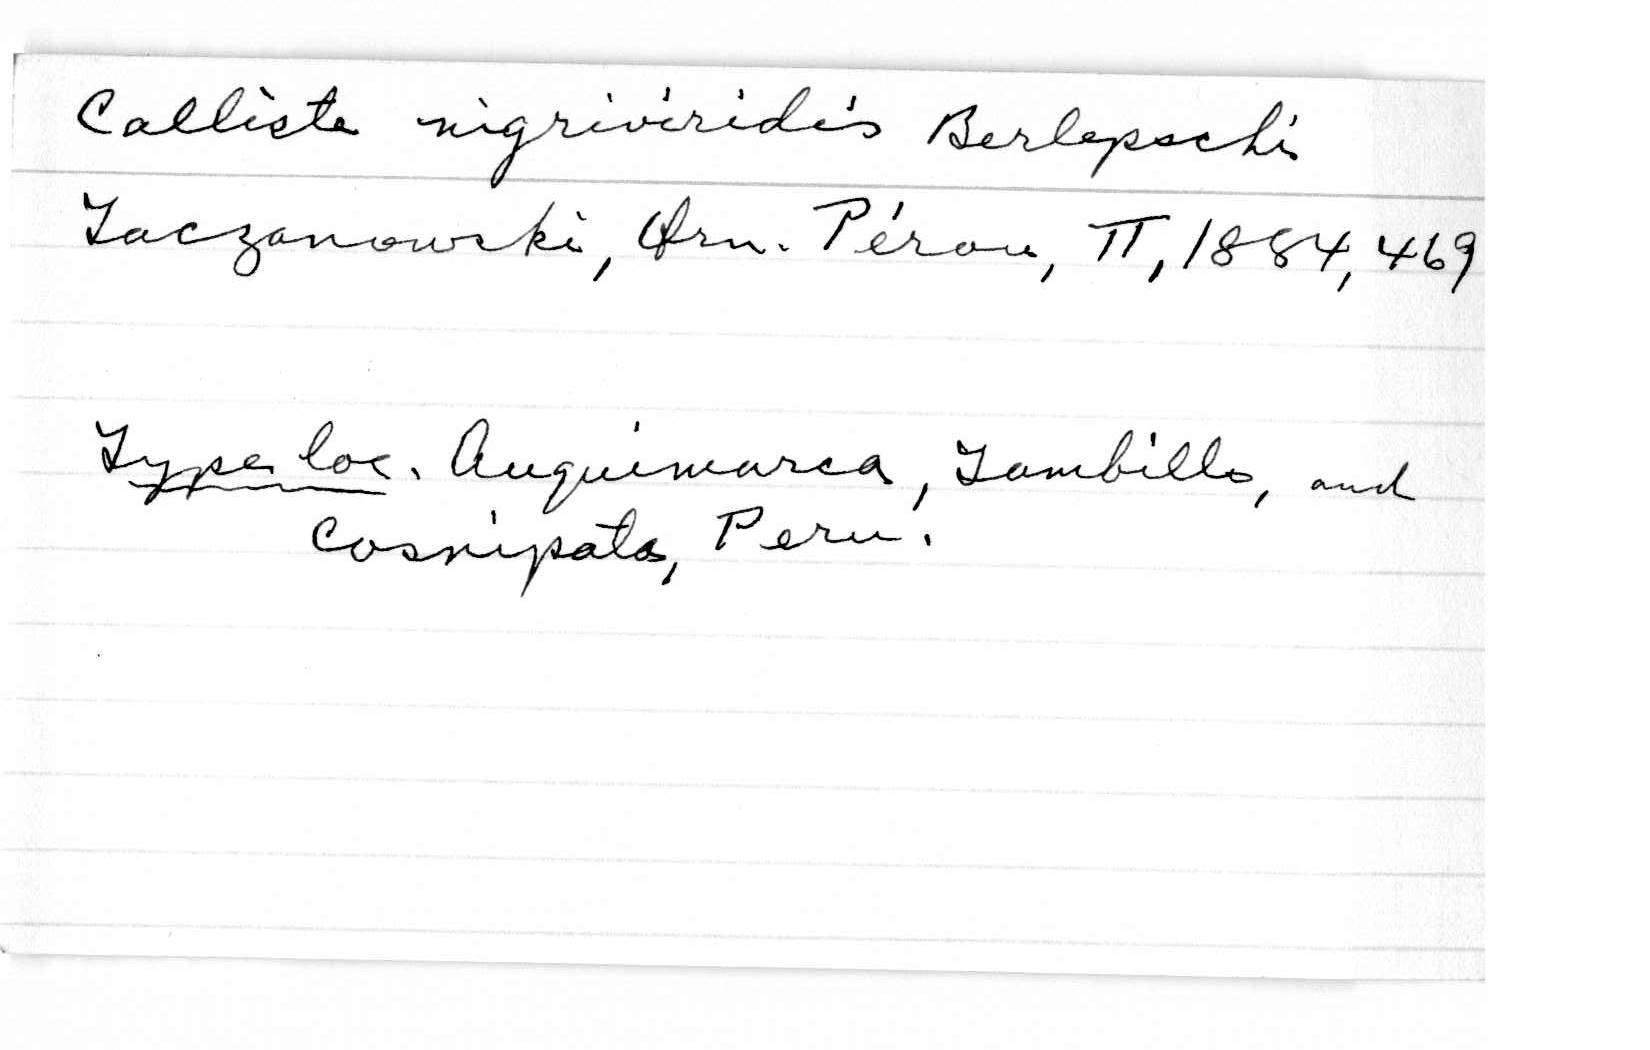 Calliste nigriviridis Berlepschi
Taczanowski, Orn. Pérou, II, 1884, 469
Type loc. Auquimarca, Tambillo, and
Cosnipata, Peru.